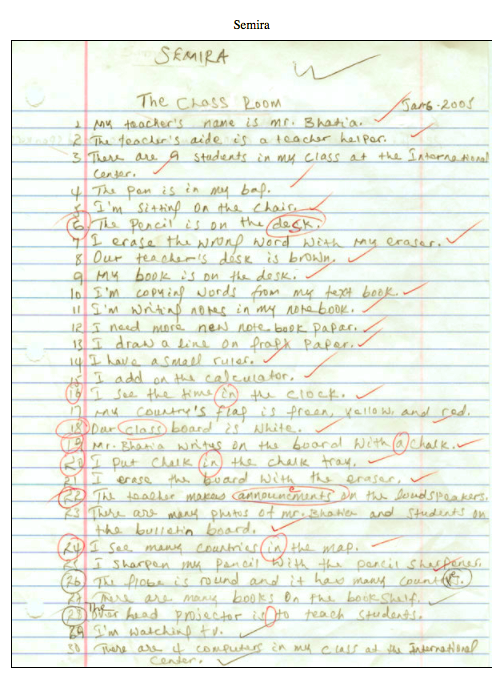 Semira
SEMIRA
The Class Room Jan 6-2005
1 My teacher's name is Mr. Bhatia.
2 The teacher's aide is a teacher helper.
3 There are 9 students in my class at the International
Center.
4 The pen is in my bag.
5 I'm sitting on the chair.
6 The pencil is on the desk.
7 I erase the wrong word with my eraser.
8 Our teacher's desk is brown.
9 My book is on the desk.
10 I'm copying words from my text book.
11 I'm writing notes in my note book.
12 I need more new note book papar.
13 I draw a line on graph paper.
14 I have a small ruler.
15 I add on the calculator.
16 I see the time in the clock.
17 My country's flag is green, yellow, and red.
18 Our class board is white.
19 Mr. Bhatia writys on the board with a chalk.
20 I put chalk in the chalk tray.
21 I erase the board with the eraser.
22 The teacher makes announcements on the loudspeakers.
23 There are many photos of Mr. Bhatia and students on
the bulletin board.
24 I see many countries in the map.
25 I sharpen my pencil with the pencil sharpener.
26 The globe is round and it has many
27 There are many books on the bookshelf.
28 The Over head projector is to teach students.
29 I'm watching tv.
30 There are 4 computers in my class at the International
Center.